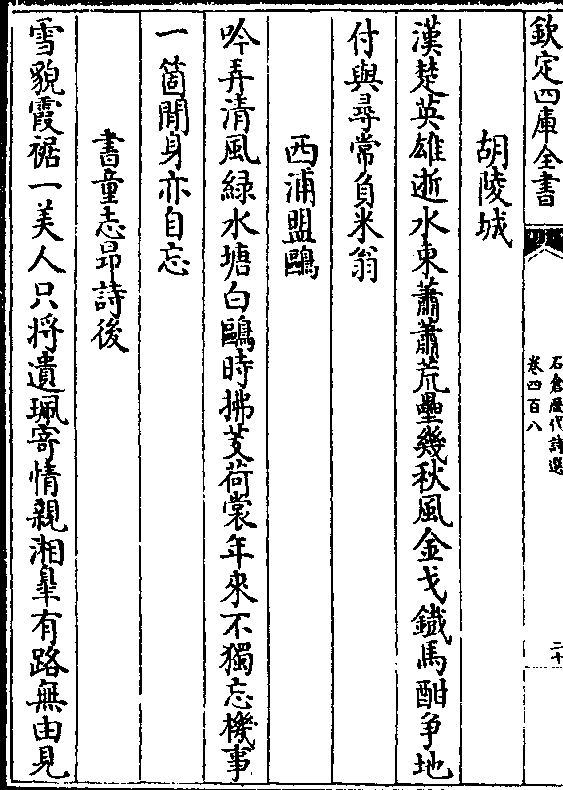 欽定四庫全書
石倉歴代詩選
卷四百八
二十
胡陵城
漢楚英雄逝水東蕭蕭荒壘幾秋風金戈鐵馬酣爭地
付與尋常負米翁
西浦盟鷗
吟弄清風緑水塘白鷗時拂芰荷裳年來不獨忘機事
一箇閒身亦自忘
書童志昂詩後
雪貌霞裾一美人只將遺珮寄情親湘臯有路無由見